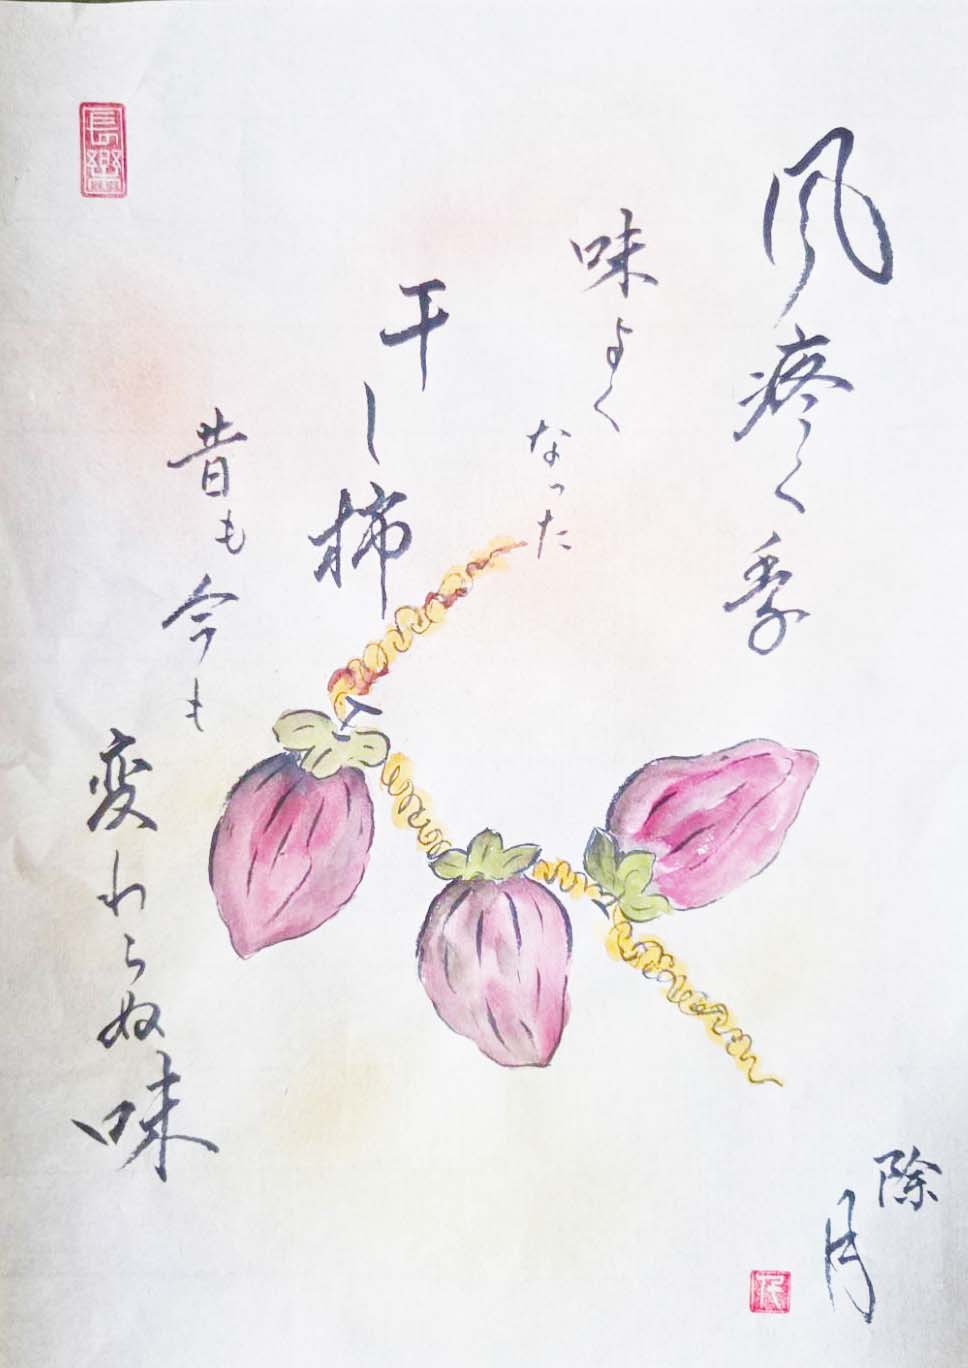 風疼く季
味よく
なった
干し柿
昔も今も
変わらぬ味
除
月
長樂